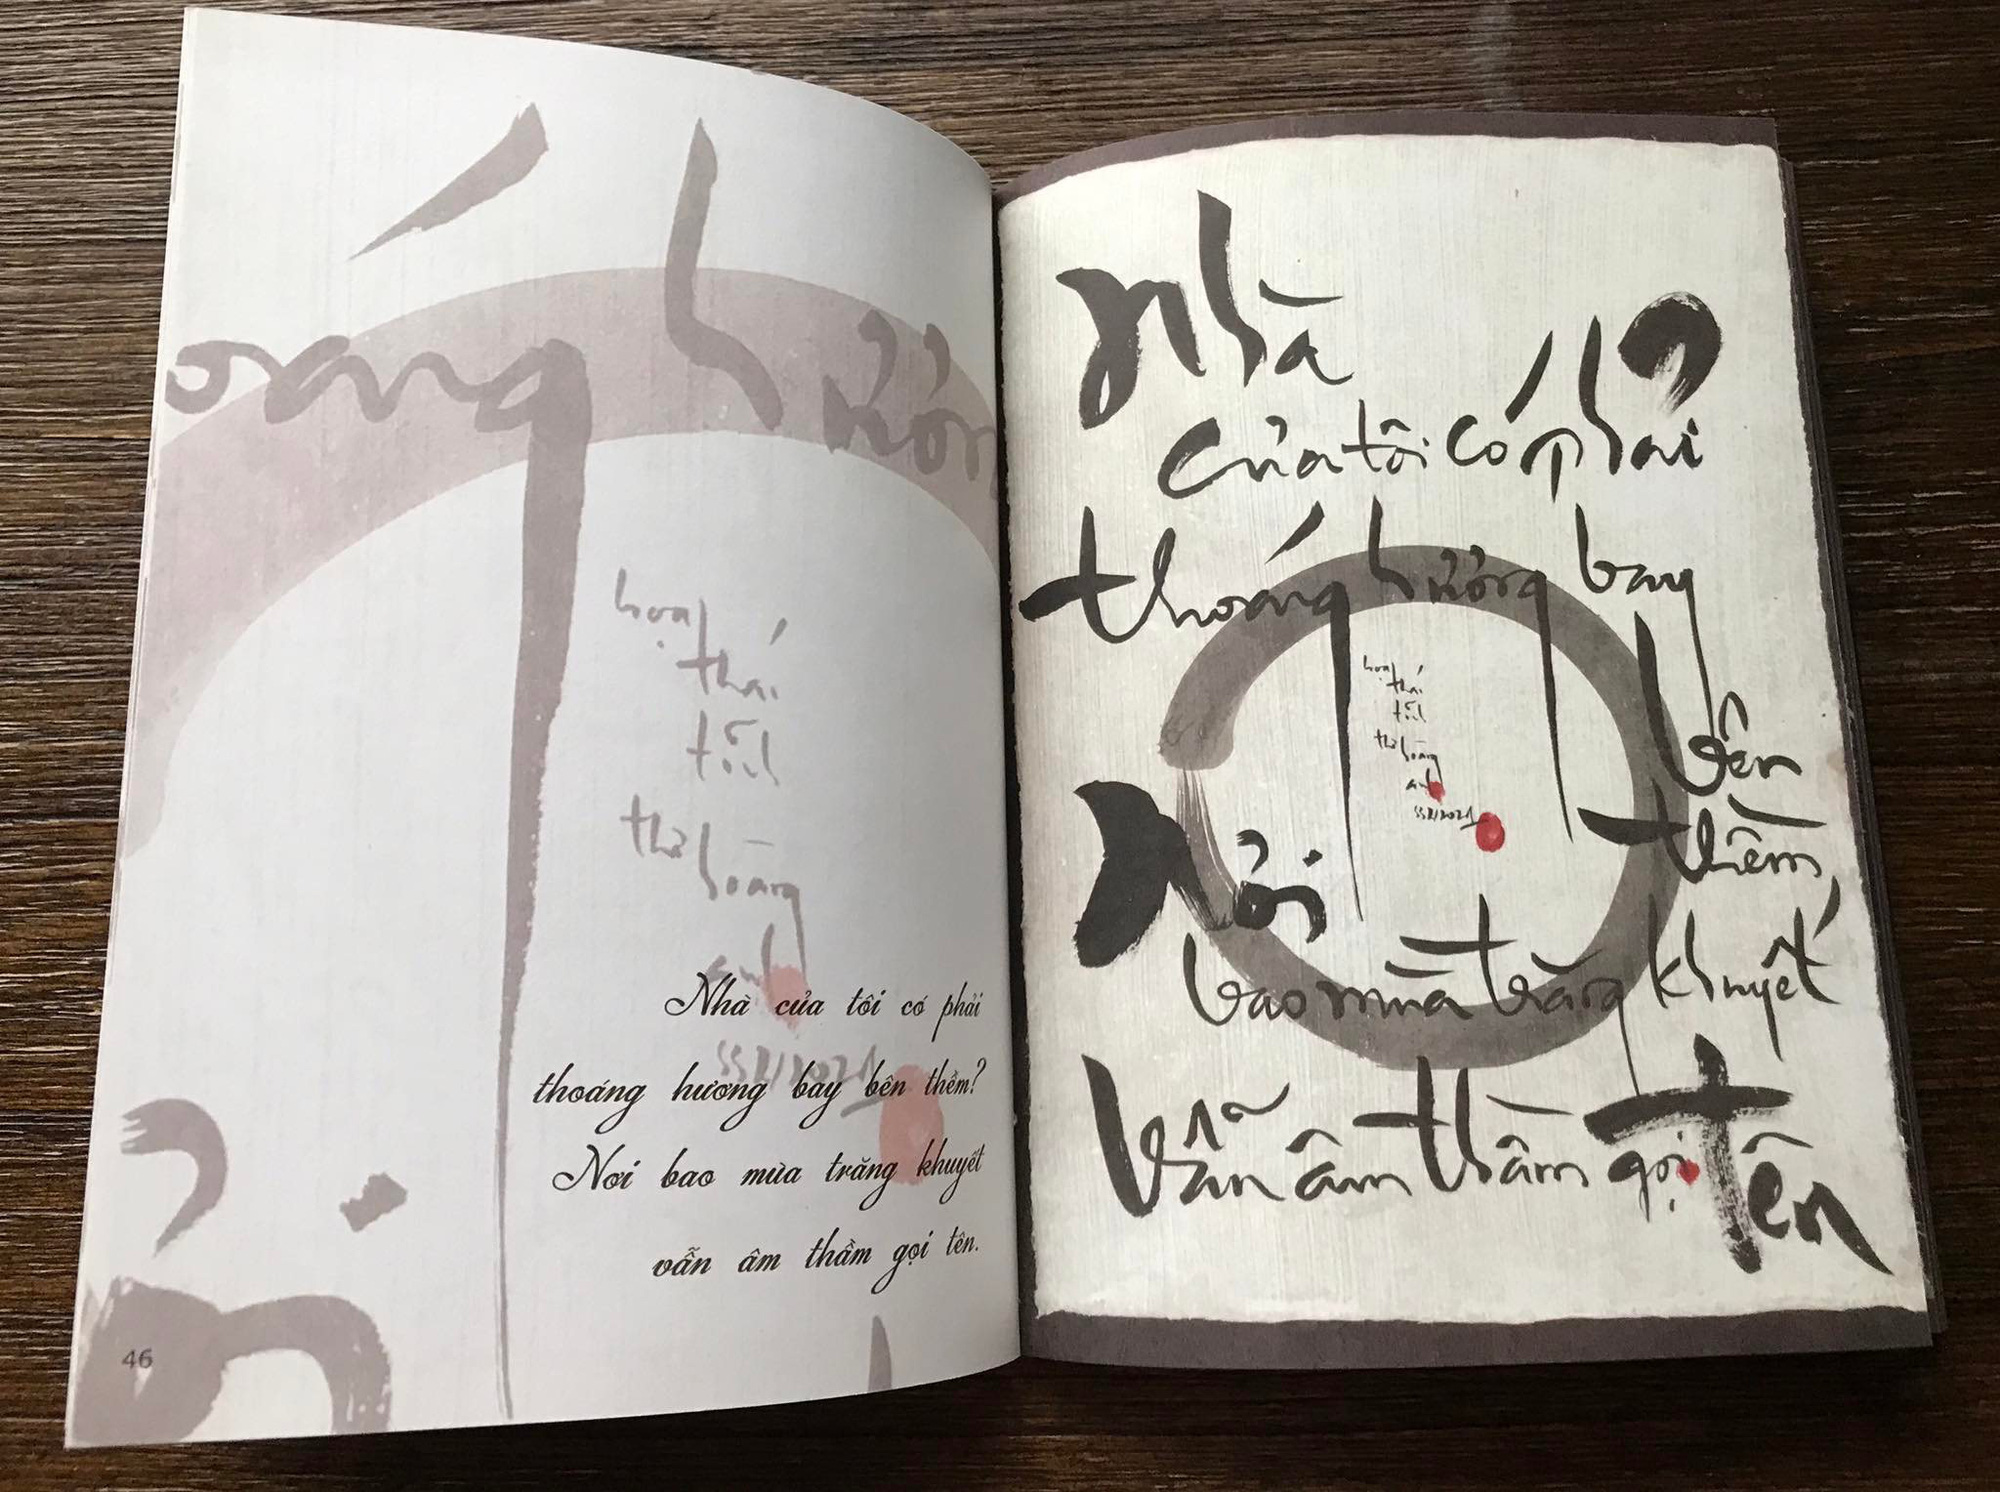 oáng hươn
họa
thái
tĩnh
thơ
hoàng
anh
Nhà của tôi có phải
thoáng hương bay bên thềm?
Nơi bao mùa trăng khuyết
vẫn âm thầm gọi tên.
46
Nhà
của tôi có phải
thoáng hương bay
bên
thềm,
họa
thái
tĩnh
thơ
hoàng
anh
Nơi
bao mùa trăng khuyết
vẫn âm thầm gọi tên